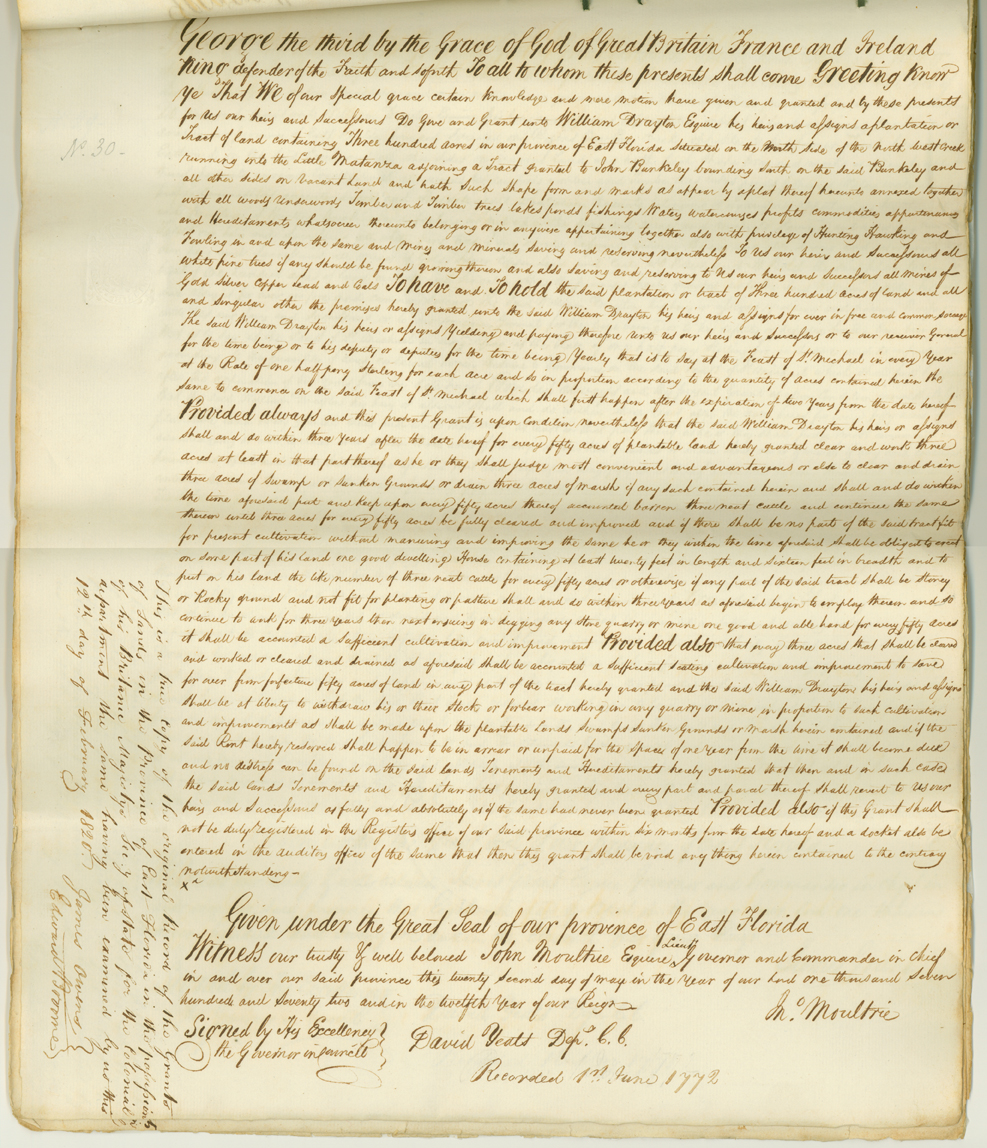 George the third by the Grace of God of Great Britain France and Ireland
King defender of the Faith and soforth To all to whom these presents shall come Greeting Know
ye That We of our special grace certain Knowledge and mere motion have given and granted and by these presents
for us our heirs and successours Do Give and Grant unto William Drayton Esquire his heirs and assigns a plantation or
Tract of land containing Three hundred acres in our province of East Florida situated on the North side of the north west creek
running into the Little Matanza adjoining a Tract granted to John Bunkeley bounding South on the said Bunkeley and
all other sides on vacant Land and hath such shape form and marks as appear by a plat thereof hereunto annexed together
with all woods underwoods Timber and Timber trees lakes ponds fishings Waters watercourses profits commodities appurtenances
and Hereditaments whatsoever thereunto belonging or in anywise appertaining together also with privilege of Hunting Hawking and
Fowling in and upon the same and mines and minerals saving and reserving nevertheless To Us our heirs and successours all
white pine trees if any should be found growing thereon and also saving and reserving to Us our heirs and successours all mines of
Gold Silver Copper Lead and Coals To have and To hold the said plantation or tract of Three hundred acres of land and all
and singular other the premises hereby granted unto the said William Drayton his heirs and assigns for ever in free and common soccage
The said William Drayton his heirs or assigns Yielding and paying therefore unto us our heirs and successors or to our receiver General
for the time being or to his deputy or deputies for the time being Yearly that is to say at the Feast of St. Michael in every Year
at the Rate of one half penny Sterling for each acre and so in proportion according to the quantity of acres contained herein the
same to commence on the said Feast of St. Michael which shall first happen after the expiration of two Years from the date hereof
Provided always and this present Grant is upon Condition nevertheless that the said William Drayton his heirs or assigns
shall and do within three Years after the date hereof for every fifty acres of plantable land hereby granted clear and work three
acres at least in that part thereof as he or they shall judge most convenient and advantageous or else to clear and drain
three acres of swamp or sunken Grounds or drain three acres of marsh if any such contained herein and shall and do within
the time aforesaid put and keep upon every fifty acres thereof accounted barren three neat cattle and continue the same
thereon until three acres for every fifty acres be fully cleared and improved and if there shall be no part of the said tract fit
for present cultivation without manuring and improving the same he or they within the time aforesaid shall be obliged to erect
on some part of his land one good dwelling House containing at least twenty feet in length and sixteen feet in breadth and to
put on his land the like number of three neat cattle for every fifty acres or otherwise if any part of the said tract shall be Stoney
or Rocky ground and not fit for planting or pasture shall and do within three years as aforesaid begin to employ thereon and so
continue to work for three Years then next ensuing in digging any stone quarry or mine one good and able hand for every fifty acres
it shall be accounted a sufficient cultivation and improvement Provided also that every three acres that shall be cleared
and worked or cleared and drained as aforesaid shall be accounted a sufficient seating cultivation and improvement to save
for ever from forfeiture fifty acres of land in any part of the tract hereby granted and the said William Drayton his heirs and assigns
shall be at liberty to withdraw his or their stock or forbear working in any quarry or mine in proportion to such cultivation
and improvements as shall be made upon the plantable Lands Swamps Sunken Grounds or marsh herein contained and if the
said Rent hereby reserved shall happen to be in arrear or unpaid for the space of one year from the time it shall become due
and no distress can be found on the said lands Tenements and Hereditaments hereby granted that then and in such case
the said lands Tenements and Hereditaments hereby granted and every part and parcel thereof shall revert to us our
heirs and successours as fully and absolutely as if the same had never been granted Provided also if this Grant shall
not be duly registered in the Registers office of our said province within six months from the date hereof and a docket also be
entered in the auditors office of the same that then this grant shall be void any thing herein contained to the contrary
notwithstanding
Given under the Great Seal of our province of East Florida
Witness our trusty & well beloved John Moultrie Esquire Lieut. Governor and Commander in chief
in and over our said province this twenty second day of may in the Year of our Lord one thousand seven
hundred and seventy two and in the twelfth Year of our Reign
Jno. Moultrie
Signed by His Excellency
the Governor in council
David Yeats Dep. C. C.
Recorded 1st June 1772
No. 30
This is a true copy of the original Record of the Grants
of Lands in the Province of East Florida in the possession
of his Britanic Majestys Secy. of State for the Colonial
department the same having been examined by us this
12th day of February 1820
James Owens
Edmund Broome